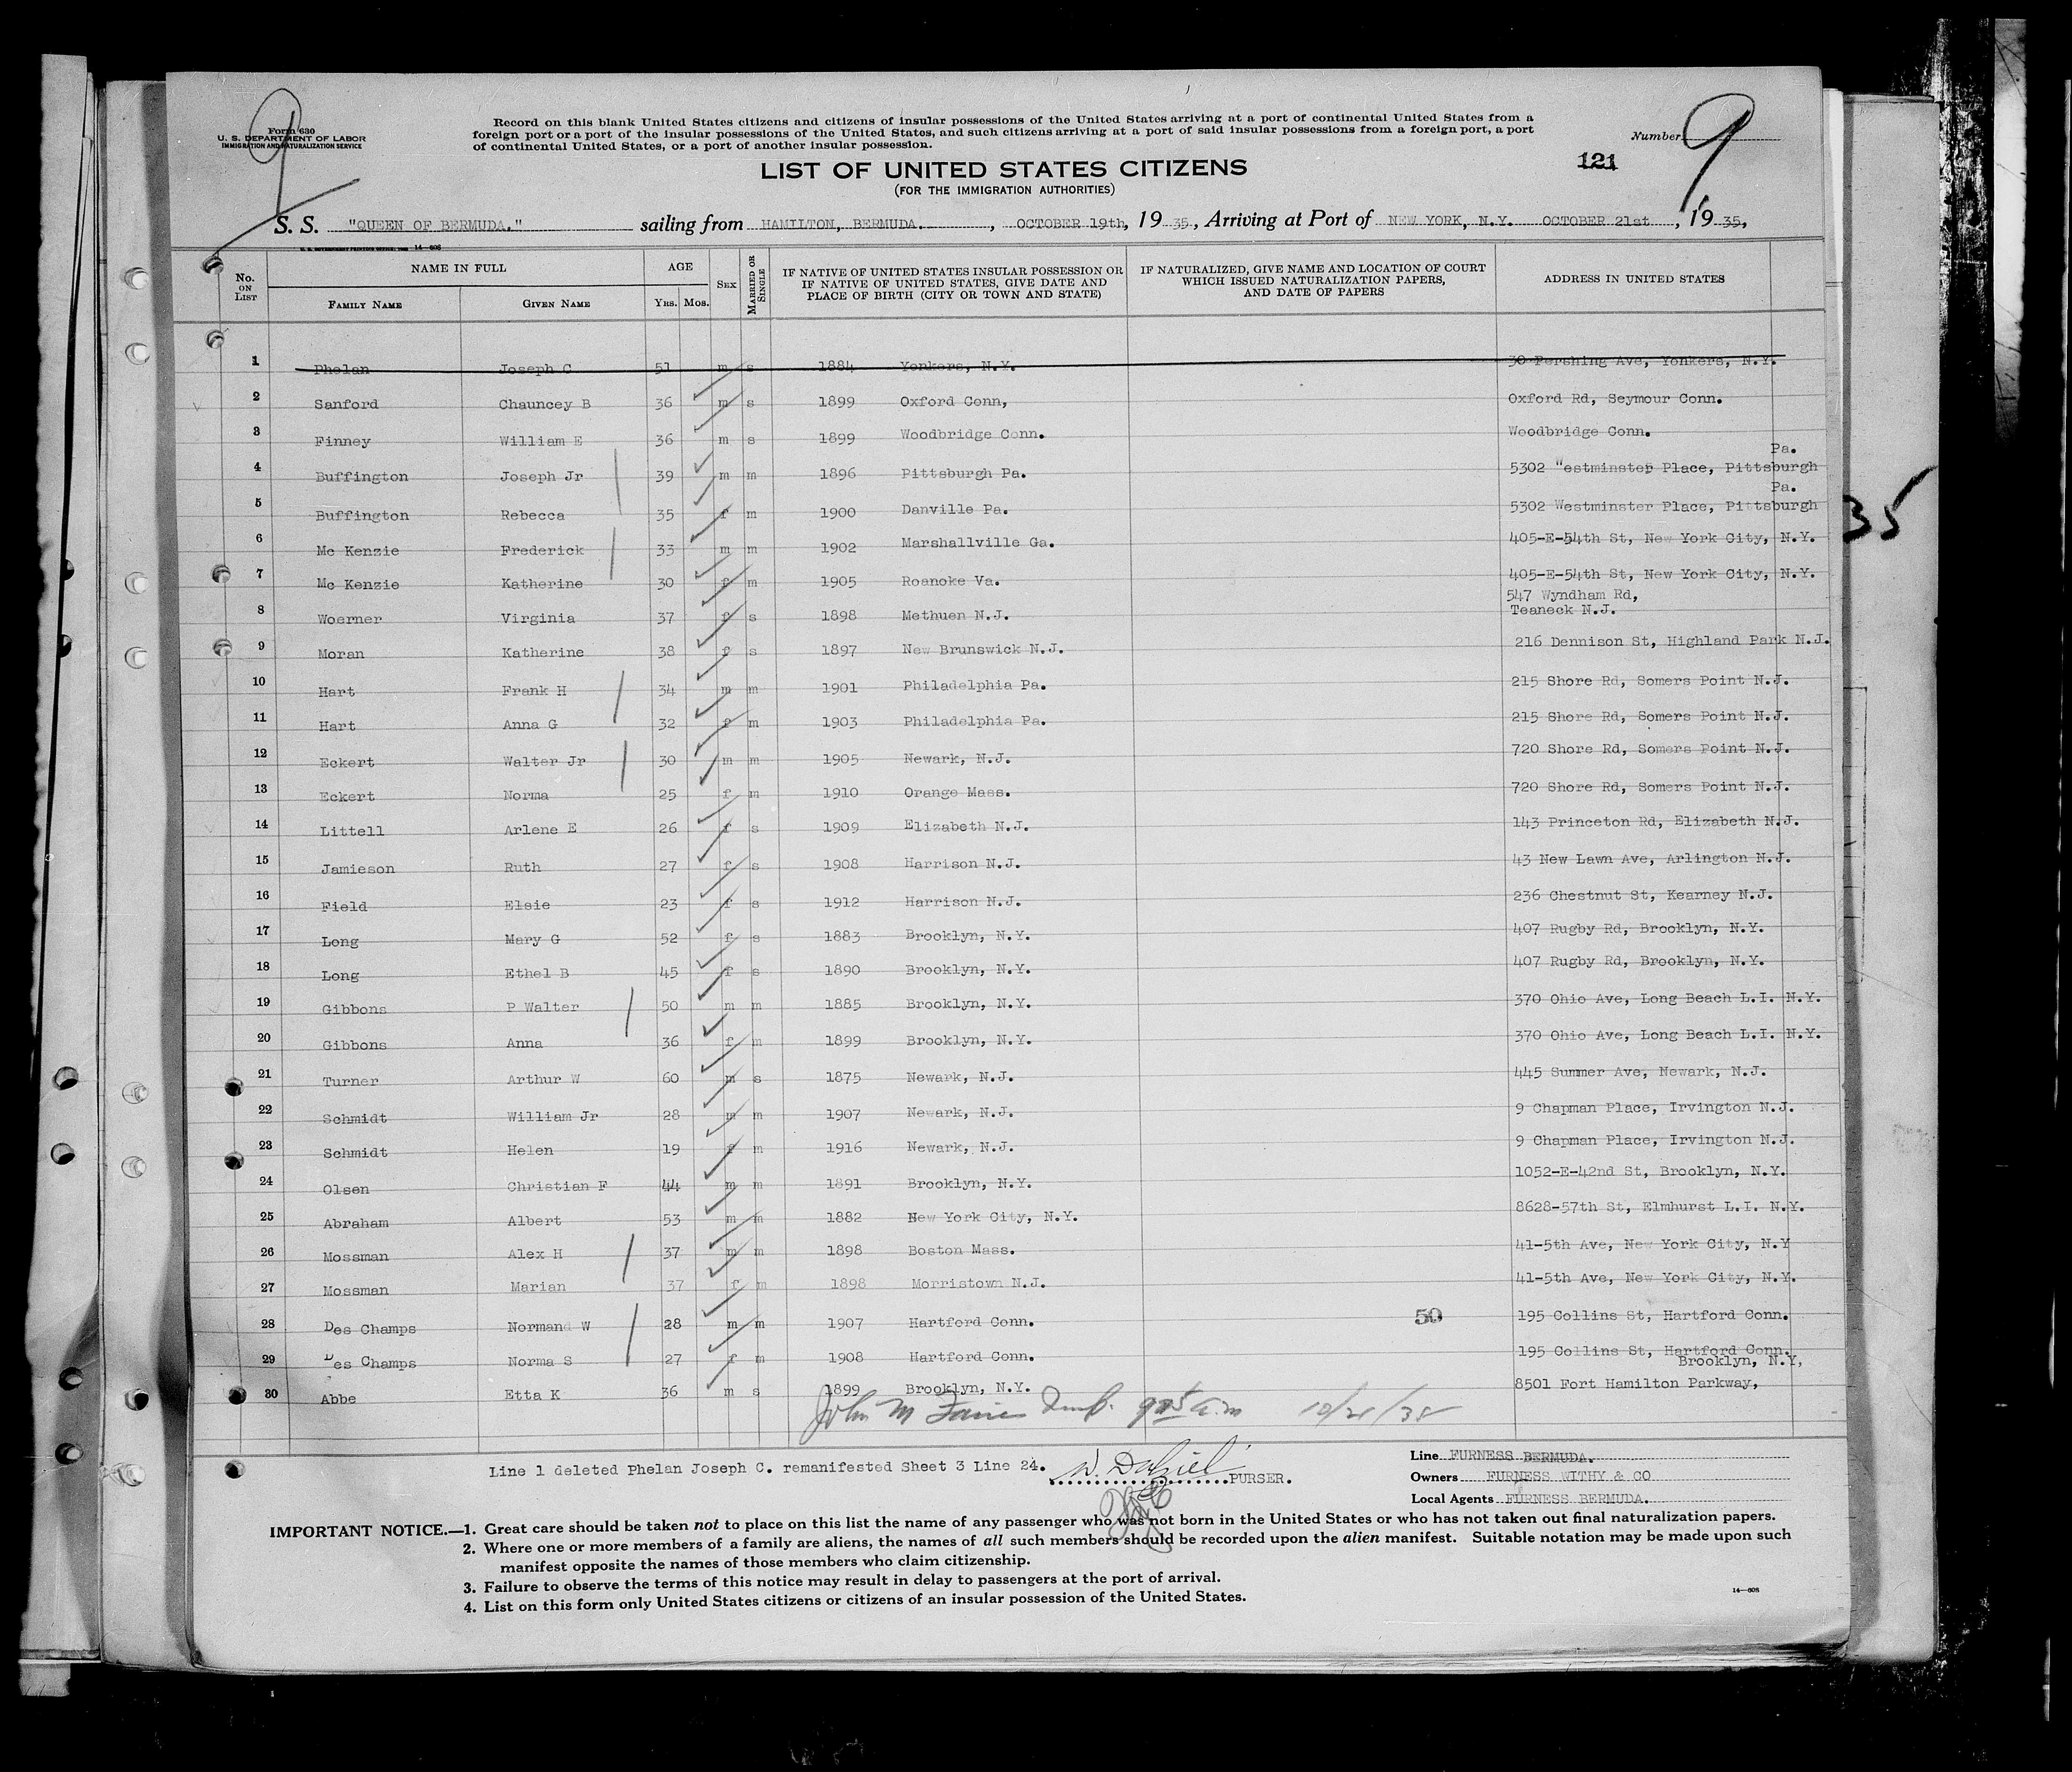 Form 630
U. S. DEPARTMENT OF LABOR
IMMIGRATION AND NATURALIZATION SERVICE
9
Record on this blank United States citizens and citizens of insular possessions of the United States arriving at a port of continental United States from a
foreign port or a port of the insular possessions of the United States, and such citizens arriving at a port of said insular possessions from a foreign port, a port
of continental United States, or a port of another insular possession.
Number 9
LIST OF UNITED STATES CITIZENS
(FOR THE IMMIGRATION AUTHORITIES)
121
S. S. "QUEEN OF BERMUDA." sailing from HAMILTON, BERMUDA. , OCTOBER 19th, 19 35, Arriving at Port of NEW YORK, N.Y. OCTOBER 21st , 19 35,
14-608
No. ON LIST NAME IN FULL FAMILY NAME GIVEN NAME AGE YRS. MOS. SEX MARRIED OR SINGLE IF NATIVE OF UNITED STATES INSULAR POSSESSION OR IF NATIVE OF UNITED STATES, GIVE DATE AND PLACE OF BIRTH (CITY OR TOWN AND STATE) IF NATURALIZED, GIVE NAME AND LOCATION OF COURT WHICH ISSUED NATURALIZATION PAPERS, AND DATE OF PAPERS ADDRESS IN UNITED STATES
1 Phelan Joseph C 51 m s 1884 Yonkers, N.Y. 30 Pershing Ave, Yonkers, N.Y.
2 Sanford Chauncey B 36 m s 1899 Oxford Conn, Oxford Rd, Seymour Conn.
3 Finney William E 36 m s 1899 Woodbridge Conn. Woodbridge Conn.
4 Buffington Joseph Jr 39 m m 1896 Pittsburgh Pa. 5302 "estminster Place, Pittsburgh Pa.
5 Buffington Rebecca 35 f m 1900 Danville Pa. 5302 Westminster Place, Pittsburgh Pa.
6 Mc Kenzie Frederick 33 m m 1902 Marshallville Ga. 405-E-54th St, New York City, N.Y.
7 Mc Kenzie Katherine 30 f m 1905 Roanoke Va. 405-E-54th St, New York City, N.Y.
8 Woerner Virginia 37 f s 1898 Methuen N.J. 547 Wyndham Rd, Teaneck N.J.
9 Moran Katherine 38 f s 1897 New Brunswick N.J. 216 Dennison St, Highland Park N.J.
10 Hart Frank H 34 m m 1901 Philadelphia Pa. 215 Shore Rd, Somers Point N.J.
11 Hart Anna G 32 f m 1903 Philadelphia Pa. 215 Shore Rd, Somers Point N.J.
12 Eckert Walter Jr 30 m m 1905 Newark, N.J. 720 Shore Rd, Somers Point N.J.
13 Eckert Norma 25 f m 1910 Orange Mass. 720 Shore Rd, Somers Point N.J.
14 Littell Arlene E 26 f s 1909 Elizabeth N.J. 143 Princeton Rd, Elizabeth N.J.
15 Jamieson Ruth 27 f s 1908 Harrison N.J. 43 New Lawn Ave, Arlington N.J.
16 Field Elsie 23 f s 1912 Harrison N.J. 236 Chestnut St, Kearney N.J.
17 Long Mary G 52 f s 1883 Brooklyn, N.Y. 407 Rugby Rd, Brooklyn, N.Y.
18 Long Ethel B 45 f s 1890 Brooklyn, N.Y. 407 Rugby Rd, Brooklyn, N.Y.
19 Gibbons P Walter 50 m m 1885 Brooklyn, N.Y. 370 Ohio Ave, Long Beach L.I. N.Y.
20 Gibbons Anna 36 f m 1899 Brooklyn, N.Y. 370 Ohio Ave, Long Beach L.I. N.Y.
21 Turner Arthur W 60 m s 1875 Newark, N.J. 445 Summer Ave, Newark, N.J.
22 Schmidt William Jr 28 m m 1907 Newark, N.J. 9 Chapman Place, Irvington N.J.
23 Schmidt Helen 19 f m 1916 Newark, N.J. 9 Chapman Place, Irvington N.J.
24 Olsen Christian F 44 m m 1891 Brooklyn, N.Y. 1052-E-42nd St, Brooklyn, N.Y.
25 Abraham Albert 53 m m 1882 New York City, N.Y. 8628-57th St, Elmhurst L.I. N.Y.
26 Mossman Alex H 37 m m 1898 Boston Mass. 41-5th Ave, New York City, N.Y
27 Mossman Marian 37 f m 1898 Morristown N.J. 41-5th Ave, New York City, N.Y.
28 Des Champs Normand W 28 m m 1907 Hartford Conn. 50 195 Collins St, Hartford Conn.
29 Des Champs Norma S 27 f m 1908 Hartford Conn. 195 Collins St, Hartford Conn.
30 Abbe Etta K 36 m s 1899 Brooklyn, N.Y. 8501 Fort Hamilton Parkway, Brooklyn, N.Y,
John M 10/21/35
35
Line 1 deleted Phelan Joseph C. remanifested Sheet 3 Line 24. PURSER.
Line FURNESS BERMUDA.
Owners FURNESS WITHY & CO
Local Agents FURNESS BERMUDA.
IMPORTANT NOTICE.—1. Great care should be taken not to place on this list the name of any passenger who was not born in the United States or who has not taken out final naturalization papers.
2. Where one or more members of a family are aliens, the names of all such members should be recorded upon the alien manifest. Suitable notation may be made upon such
manifest opposite the names of those members who claim citizenship.
3. Failure to observe the terms of this notice may result in delay to passengers at the port of arrival.
4. List on this form only United States citizens or citizens of an insular possession of the United States.
14-608